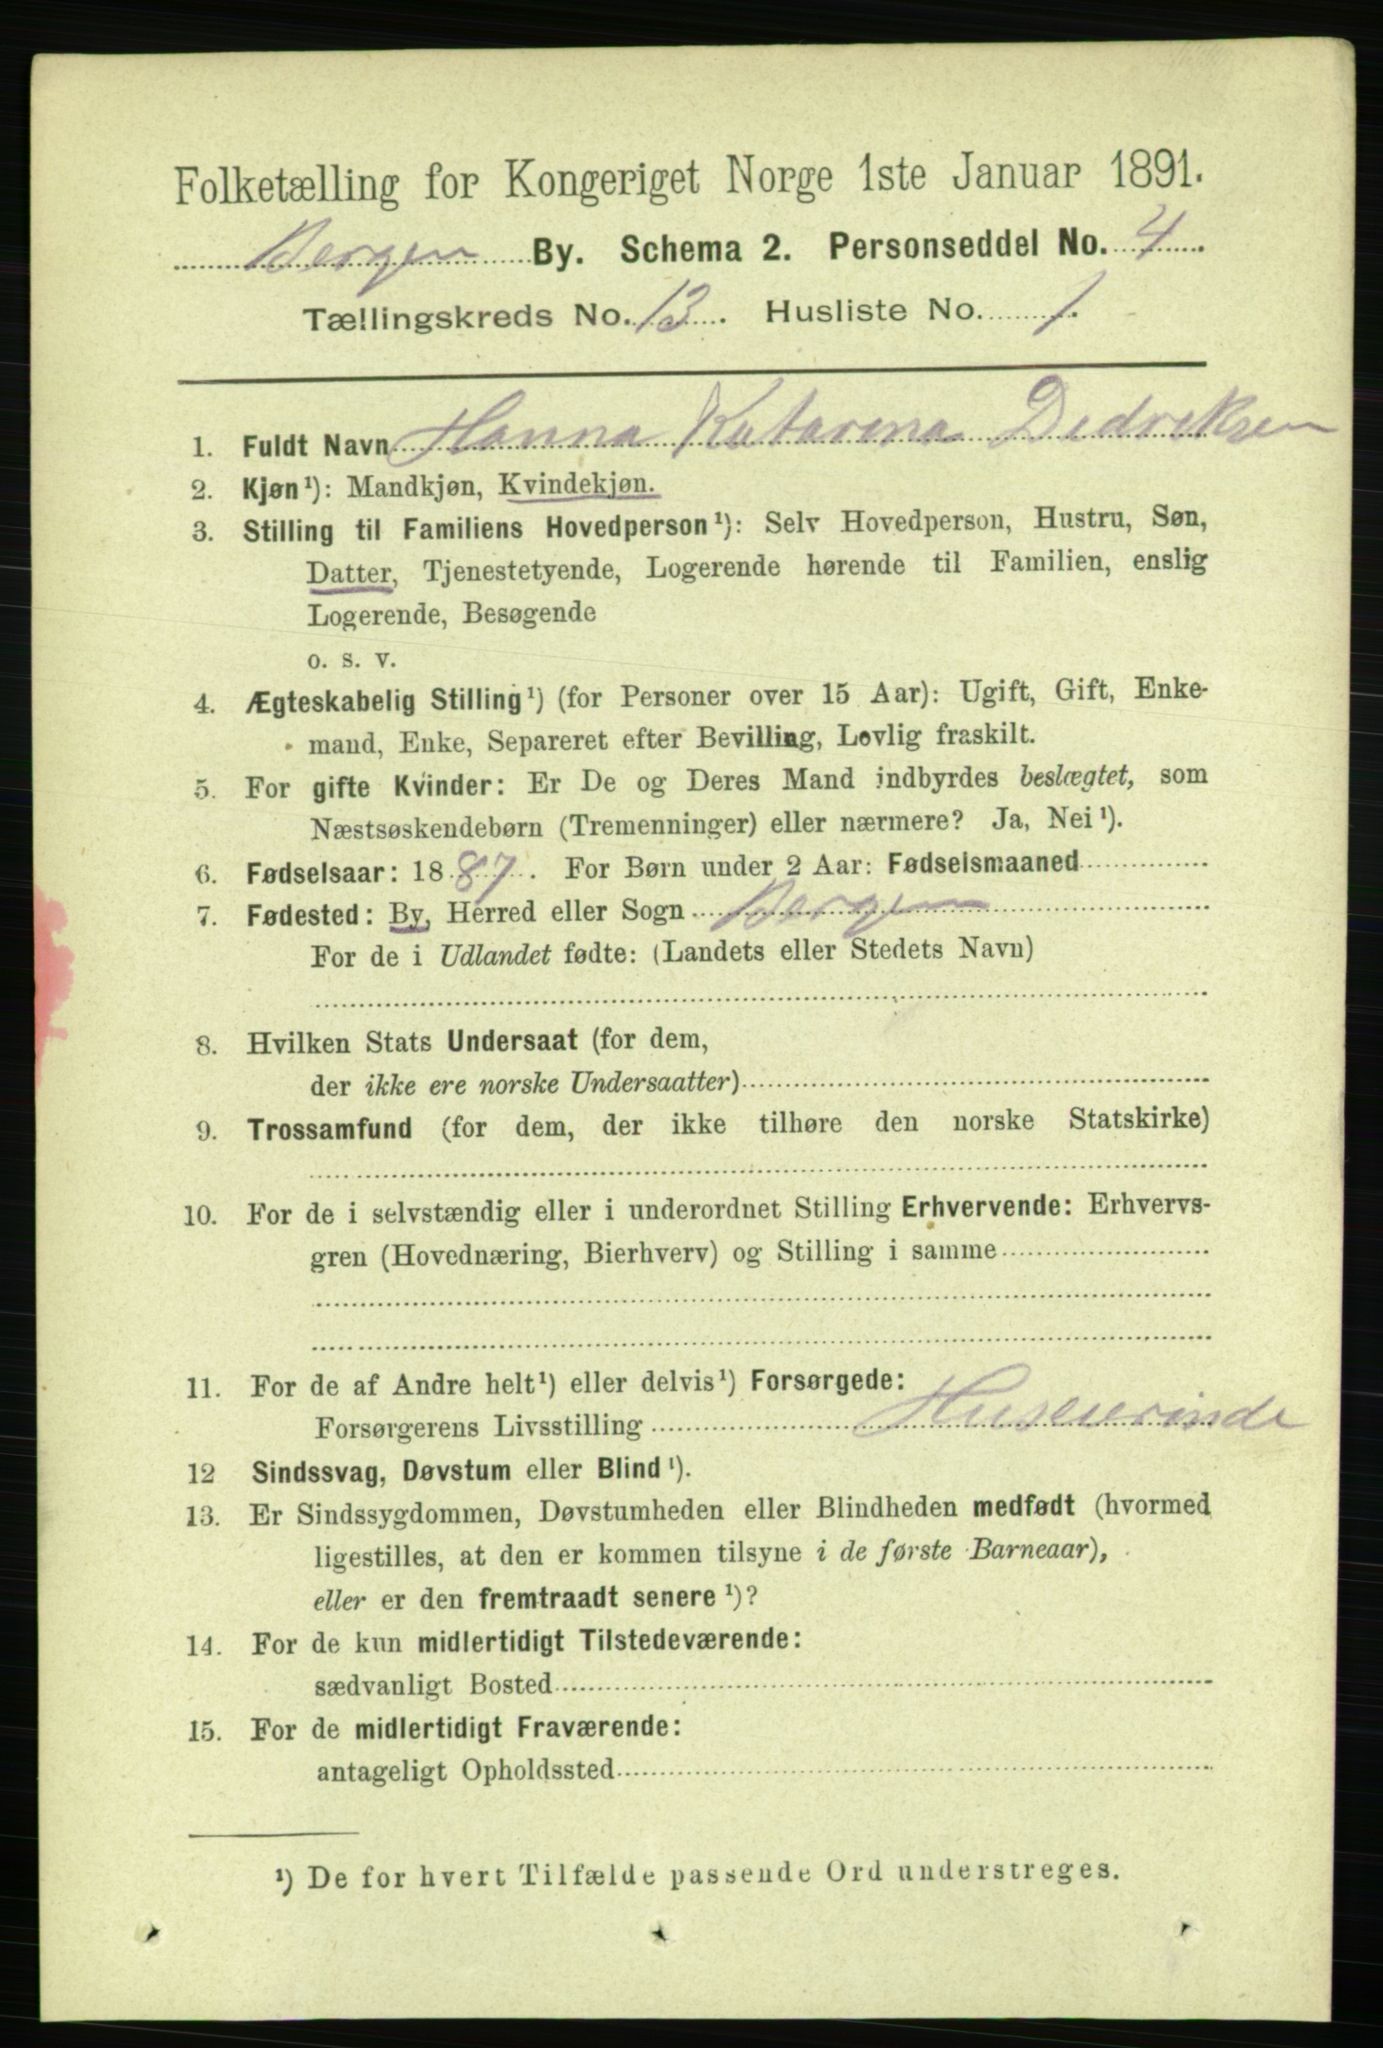 Folketælling for Kongeriget Norge 1ste Januar 1891.
Bergen By. Schema 2. Personseddel No. 4
Tællingskreds No. 13. Husliste No. 1.
1. Fuldt Navn Hanna Katarina Didriksen
2. Kjøn¹): Mandkjøn, Kvindekjøn.
3. Stilling til Familiens Hovedperson¹): Selv Hovedperson, Hustru, Søn,
Datter, Tjenestetyende, Logerende hørende til Familien, enslig
Logerende, Besøgende
o. s. v.
4. Ægteskabelig Stilling¹) (for Personer over 15 Aar): Ugift, Gift, Enke-
mand, Enke, Separeret efter Bevilling, Lovlig fraskilt.
5. For gifte Kvinder: Er De og Deres Mand indbyrdes beslægtet, som
Næstsøskendebørn (Tremenninger) eller nærmere? Ja, Nei¹).
6. Fødselsaar: 1887. For Børn under 2 Aar: Fødselsmaaned
7. Fødested: By, Herred eller Sogn Bergen
For de i Udlandet fødte: (Landets eller Stedets Navn)
8. Hvilken Stats Undersaat (for dem,
der ikke ere norske Undersaatter)
9. Trossamfund (for dem, der ikke tilhøre den norske Statskirke)
10. For de i selvstændig eller i underordnet Stilling Erhvervende: Erhvervs-
gren (Hovednæring, Bierhverv) og Stilling i samme
11. For de af Andre helt¹) eller delvis¹) Forsørgede:
Forsørgerens Livsstilling Huseierinde
12 Sindssvag, Døvstum eller Blind¹).
13. Er Sindssygdommen, Døvstumheden eller Blindheden medfødt (hvormed
ligestilles, at den er kommen tilsyne i de første Barneaar),
eller er den fremtraadt senere¹)?
14. For de kun midlertidigt Tilstedeværende:
sædvanligt Bosted
15. For de midlertidigt Fraværende:
antageligt Opholdssted
¹) De for hvert Tilfælde passende Ord understreges.